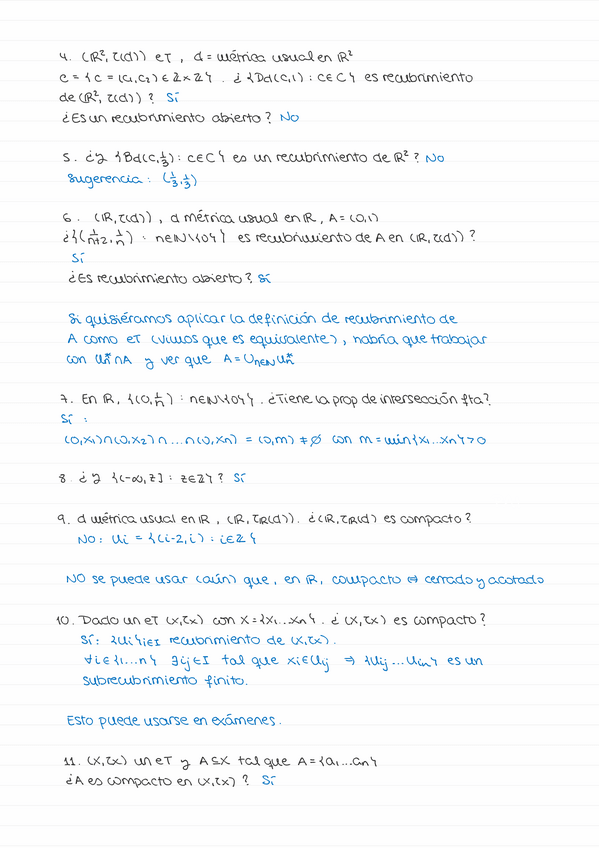 4. (ℝ², τ(d)) eT, d = métrica usual en ℝ²
C = {c = (c₁,c₂) ∈ ℤ×ℤ}. ¿{Dd(c,1) : c∈C} es recubrimiento
de (ℝ², τ(d))? Sí
¿Es un recubrimiento abierto? No
5. ¿y {Bd(c,⅓) : c∈C} es un recubrimiento de ℝ²? No
Sugerencia: (⅓,⅓)
6. (ℝ,τ(d)), d métrica usual en ℝ, A=(0,1)
¿{(1/n+2, 1/n) : n∈ℕ\{0}} es recubrimiento de A en (ℝ,τ(d))?
Sí
¿Es recubrimiento abierto? Sí
Si quisiéramos aplicar la definición de recubrimiento de
A como eT (vimos que es equivalente), habría que trabajar
con Uₙ*∩A y ver que A=∪n∈ℕ Uₙ*
7. En ℝ, {(0,1/n) : n∈ℕ\{0}}. ¿Tiene la prop de intersección fta?
Sí :
(0,x₁)∩(0,x₂)∩...∩(0,xₙ) = (0,m) ≠ ∅ con m=min{x₁...xₙ}>0
8. ¿y {(-∞,z] : z∈ℤ}? Sí
9. d métrica usual en ℝ, (ℝ,τℝ(d)). ¿(ℝ,τℝ(d) es compacto?
NO: Ui = {(i-2,i) : i∈ℤ}
NO se puede usar (aún) que, en ℝ, compacto ⇔ cerrado y acotado
10. Dado un eT (X,τx) con X={x₁...xₙ}. ¿(X,τx) es compacto?
Sí: {Ui}i∈I recubrimiento de (X,τx).
∀i∈{1...n} ∃ij∈I tal que xi∈Uij ⇒ {Uij...Uin} es un
subrecubrimiento finito.
Esto puede usarse en exámenes.
11. (X,τx) un eT y A⊆X tal que A={a₁...aₙ}
¿A es compacto en (X,τx)? Sí